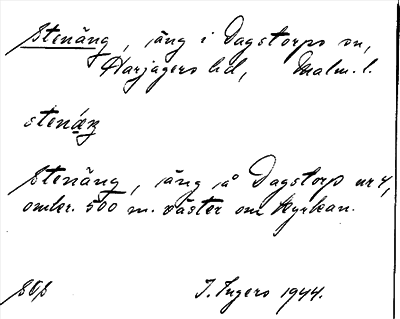 Stenäng, äng i Dagstorps sn,
Harjagers hd, Malm. l.
Stenäng, äng å Dagstorp nr 4,
omkr. 500 m. väster om Kyrkan.
I. Ingers 1944.